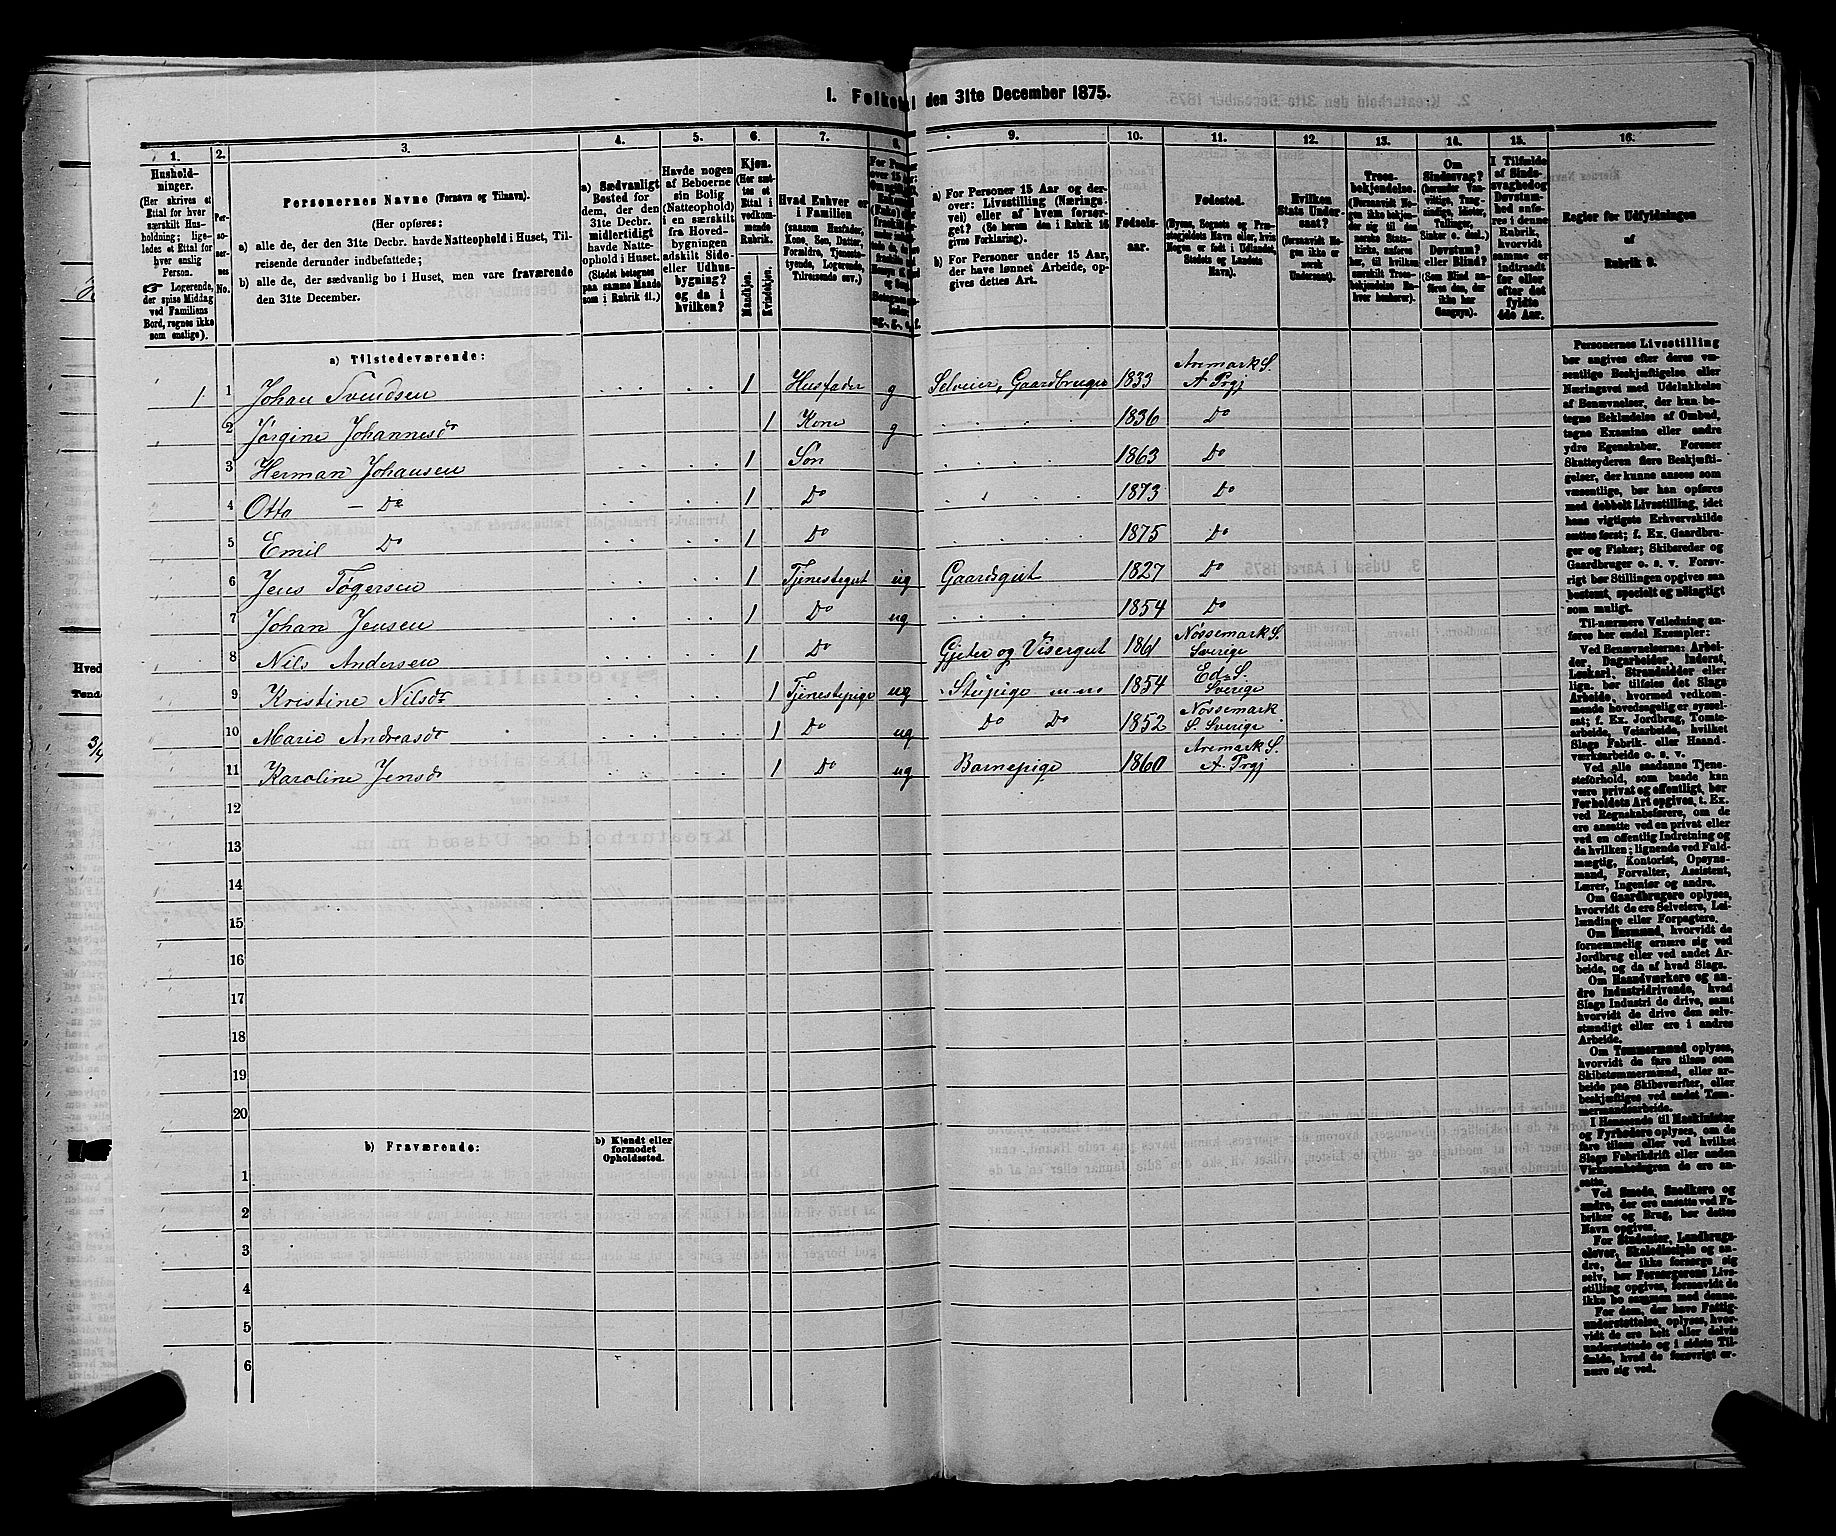 1. Folketal den 31te December 1875.
1. 2. 3. 4. 5. 6. 7. 8. 9. 10. 11. 12. 13. 14. 15. 16.
Hushold-
ninger.
(Her skrives et
Ettal for hver
særskilt Hus-
holdning; lige-
ledes et Ettal for
hver enslig
Person.
Logerende,
der spise Middag
ved Familiens
Bord, regnes ikke
som enslige).
Per-
so-
ner-
nes
No.
Personernes Navne (Fornavn og Tilnavn).
(Her opføres:
a) alle de, der den 31te Decbr. havde Natteophold i Huset, Til-
reisende derunder indbefattede;
b) alle de, der sædvanlig bo i Huset, men vare fraværende
den 31te December.
a) Sædvanligt
Bosted for
dem, der den
31te Decbr.
midlertidigt
havde Natte-
ophold i Huset.
(Stedet betegnes
paa samme Maade
som i Rubrik 11.)
Havde nogen
af Beboerne
sin Bolig
(Natteophold)
i en særskilt
fra Hoved-
bygningen
adskilt Side-
eller Udhus-
bygning?
og da i
hvilken?
Kjøn.
(Her sæt-
tes et
Ettal i
vedkom-
mende
Rubrik.
Mandkjøn.
Kvindekjøn.
Hvad Enhver er
i Familien
(saasom Husfader,
Kone, Søn, Datter,
Forældre, Tjeneste-
tyende, Logerende,
Tilreisende osv.)
a) For Personer 15 Aar og der-
over: Livsstilling (Nærings-
vei) eller af hvem forsør-
get? (Se herom den i Rubrik 16
givne Forklaring).
b) For Personer under 15 Aar,
der have lønnet Arbeide, op-
gives dettes Art.
Fødsels-
aar.
Fødested.
(Byens, Sognets og Præ-
stegjeldets Navn eller, hvis
Nogen er født i Udlandet,
Stedets og Landets
Navn).
Hvilken
Stats Under-
saat?
(forsaavidt No-
gen ikke er
norsk
Undersaat).
Troes-
bekjendelse.
(Forsaavidt No-
gen ikke bekjen-
der sig til den
norske Stats-
kirke, anføres
her, til hvilken
særskilt Troes-
bekjendelse En-
hver henhører).
Om
Sindssvag?
Døvstum?
eller Blind?
I Tilfælde
af Sinds-
svaghed og
Døvstum-
hed anfø-
res i denne
Rubrik,
hvorvidt
samme er
indtraadt
før eller
efter det
fyldte
4de Aar.
Regler for Udfyldningen
af
Rubrik 9.
a) Tilstedeværende:
1 1 Johan Svendsen 1 Husfader g Selveier, Gaardbruger 1833 Aremark S. A Prgj
2 Jørgine Johannesdr 1 Kone g 1836 Do
3 Herman Johansen 1 Søn 1863 Do
4 Otto – Do 1 Do 1873 Do
5 Emil Do 1 Do 1875 Do
6 Jens Tøgersen 1 Tjenestegut ug Gaardsgut 1827 Do
7 Johan Jensen 1 Do ug 1854 Do
8 Nils Andersen 1 Do Gjeter og Visergut 1861 Nössemark S. Sverige
9 Kristine Nilsdr 1 Tjenestepige ug Stupige m m 1854 Eds S. Sverige
10 Marie Andreasdr 1 Do ug Do Do 1852 Nössemark S. Sverige
11 Karoline Jensdr 1 Do ug Barnepige 1860 Aremark S. A Prgj
12
13
14
15
16
17
18
19
20
b) Fraværende:
b) Kjendt eller
formodet
Opholdssted.
1
2
3
4
5
6
Personernes Livsstilling
bør angives efter deres væ-
sentlige Beskjæftigelse eller
Næringsvei med Udelukkelse
af Benævnelser, der kun be-
tegne Beklædelse af Ombud,
tagne Examina eller andre
ydre Egenskaber. Forener
Skatteyderen flere Beskjæfti-
gelser, der kunne ansees som
væsentlige, bør han opføres
med dobbelt Livsstilling, idet
hans vigtigste Erhvervskilde
sættes først; f. Ex. Gaardbru-
ger og Fisker; Skibsreder og
Gaardbruger o. s. v. Forøv-
rigt bør Stillingen opgives saa
bestemt, specielt og nøiagtigt
som muligt.
Til nærmere Veiledning an-
føres her endel Exempler:
Ved Benævnelserne: Arbei-
der, Dagarbeider, Inderst,
Løskarl, Strandsidder eller
lign. bør tilføies det Slags
Arbeide, hvormed vedkom-
mende hovedsagelig er syssel-
sat; f. Ex. Jordbrug, Tomte-
arbeide, Veiarbeide, hvilket
Slags Fabrik- eller Haand-
værksarbeide o. s. v.
Ved alle saadanne Tjene-
steforhold, som baade kan
være privat og offentligt, bør
Forholdets Art opgives, t. Ex.
ved Regnskabsførere, om de
ere ansatte ved en privat eller
ved en offentlig Indretning og
da hvilken; lignende ved Fuld-
mægtig, Kontorist, Opsyns-
mand, Forvalter, Assistent,
Lærer, Ingeniør og andre.
Om Gaardbrugere oplyses,
hvorvidt de ere Selveiere, Lei-
lændinge eller Forpagtere.
Om Husmænd, hvorvidt de
fornemmelig ernære sig ved
Jordbrug eller ved andet Ar-
beide, og da af hvad Slags.
Om Haandværkere og an-
dre Industridrivende, hvad
Slags Industri de drive, samt
hvorvidt de drive den selv-
stændigt eller ere i andres
Arbeide.
Om Tømmermænd oplyses,
hvorvidt de fare tilsøs som
Skibstømmermænd, eller ar-
beide paa Skibsværfter, eller
beskjæftiges ved andet Tøm-
mermandsarbeide.
I Henseende til Maskinister
og Fyrbødere oplyses, om de
fare tilsøs eller ved hvilket
Slags Fabrikdrift eller anden
Virksomhedsgren de ere an-
satte.
Ved Smede, Snedkere og
andre, der ere ansatte ved Fa-
briker og Brug, bør dettes
Navn opgives.
For Studenter, Landbrugs-
elever, Skoledisciple og an-
dre, der ikke forsørge sig
selv, bør Forsørgerens Livs-
stilling opgives, forsaavidt de
ikke bo sammen med denne.
For dem, der have Fattig-
understøttelse, oplyses, hvor-
vidt de ere helt eller delvis
understøttede og i sidste Til-
fælde, hvad de forøvrigt er-
nære sig ved.